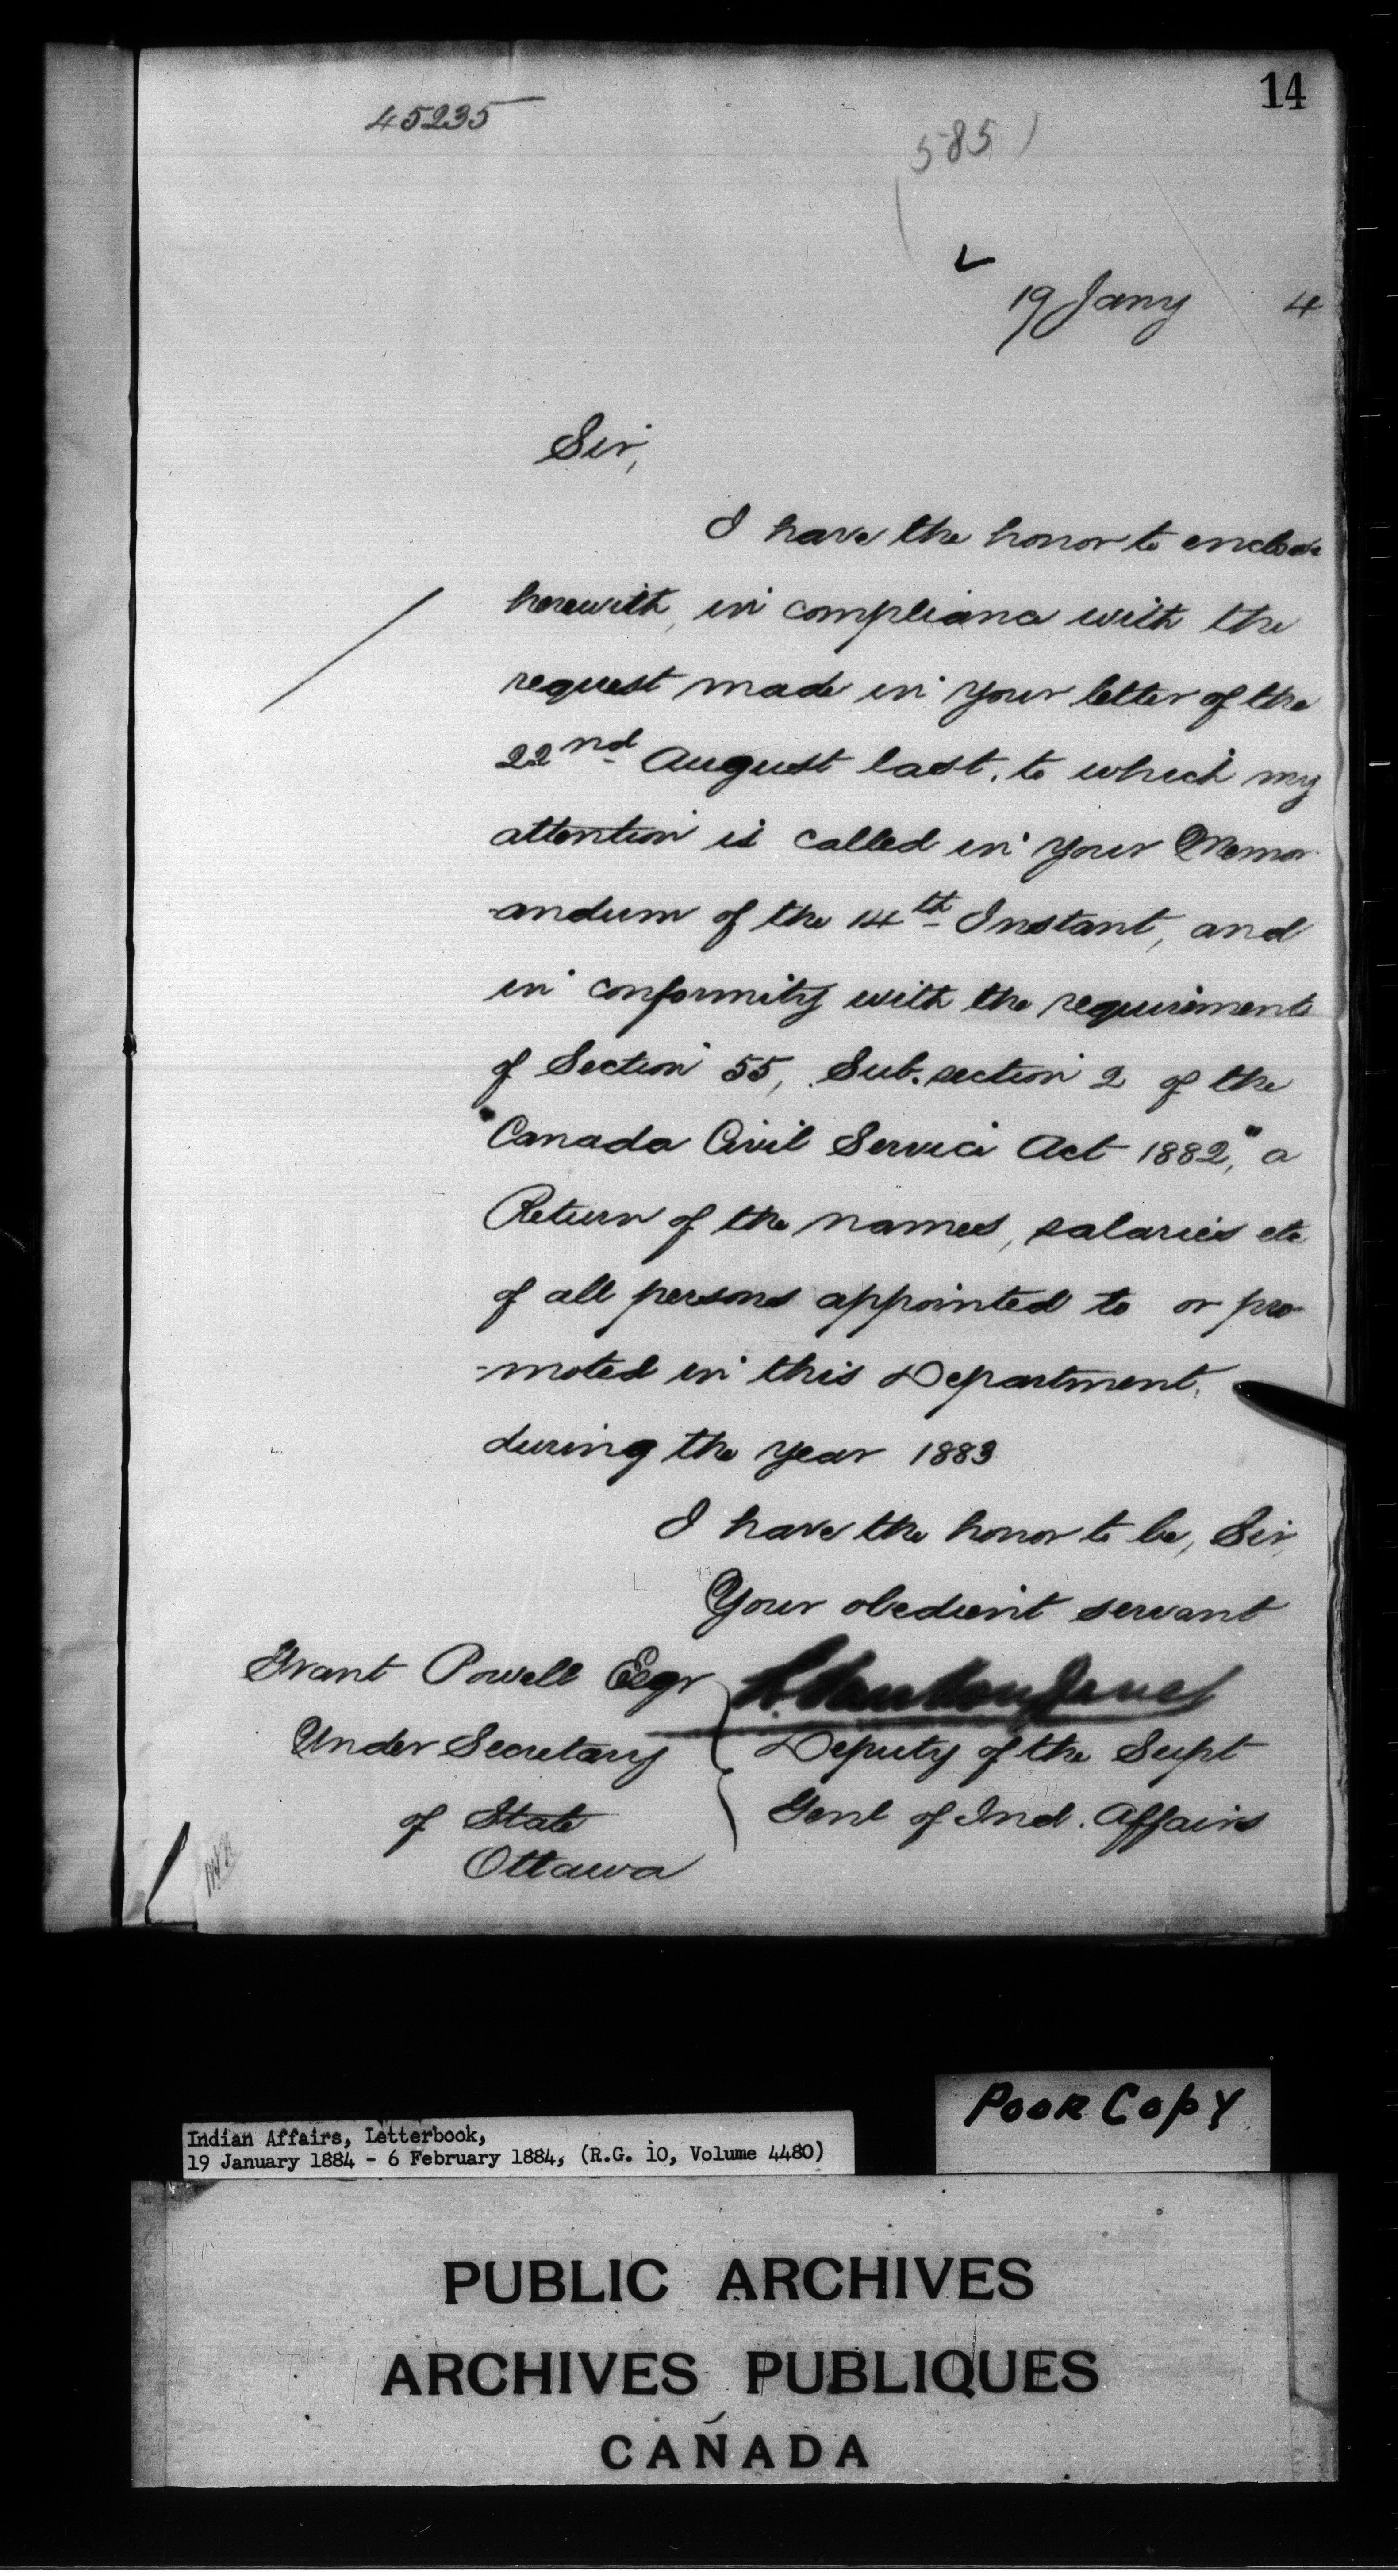 14
45235
585
19 Jany 4
Sir,
I have the honor to enclose
herewith, in compliance with the
request made in your letter of the
22nd August last, to which my
attention is called in your Memor
-andum of the 14th Instant, and
in conformity with the requirements
of Section 55, Sub. section 2 of the
"Canada Civil Service Act 1882," a
Return of the names, salaries etc
of all persons appointed to or pro-
-moted in this Department,
during the year 1883
I have the honor to be, Sir,
Your obedient servant
Grant Powell Esqr
L. Vankoughnet
Under Secretary
Deputy of the Supt
of State
Genl of Ind. Affairs
Ottawa
POOR COPY
Indian Affairs, Letterbook,
19 January 1884 - 6 February 1884, (R.G. 10, Volume 4480)
PUBLIC ARCHIVES
ARCHIVES PUBLIQUES
CANADA